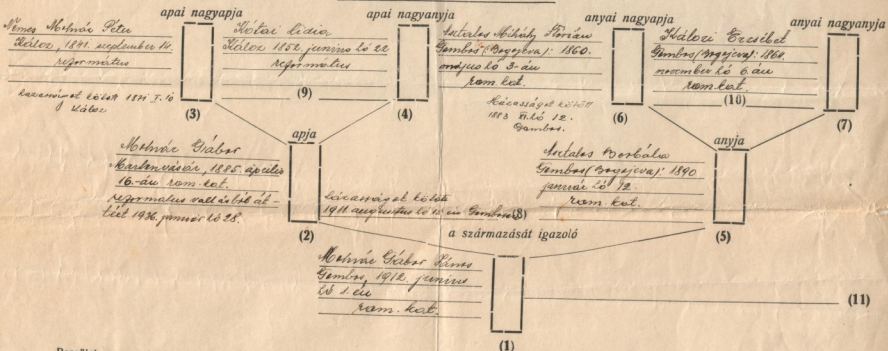 apai nagyapja
apai nagyanyja
anyai nagyapja
anyai nagyanyja
Nemes Molnár Péter
Kálóz, 1841. szeptember 14.
református
házasságot kötött 1871 I. 10
Kálóz
(3)
Kótai Lidia
Kálóz 1852. junius hó 22
református
(9)
(4)
Asztalos Mihály Flórián
Gombos (Bogojeva): 1860.
május hó 3-án
rom. kat.
Házasságot kötött
1883 XI. hó 12.
Gombos.
(6)
Kálozi Erzsébet
Gombos (Bogojeva): 1860.
november hó 6.án
rom. kat.
(10)
(7)
apja
Molnár Gábor
Martonvásár, 1885. április
16-án rom. kat.
református vallásból át-
tért 1936. január hó 28.
(2)
házasságot kötött
1911 augusztus hó 15 én Gombos
(8)
anyja
Asztalos Borbála
Gombos (Bogojeva): 1890
január hó 12.
rom. kat.
(5)
a származását igazoló
Molnár Gábor János
Gombos, 1912. junius
hó 1. én
rom. kat.
(1)
(11)